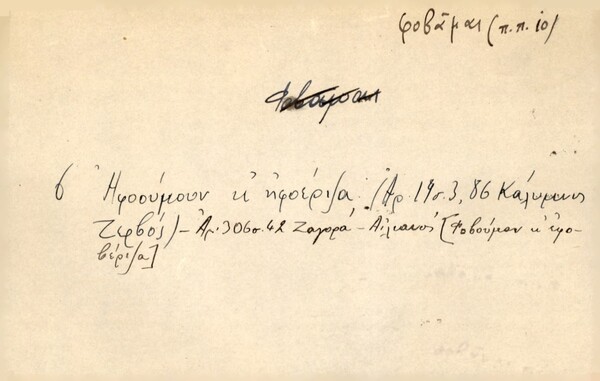 φοβᾶμαι (π.π. 10)
6 Ἠφοούμουν κ' ἠφοέριζα. (Ἀρ. 19 σ. 3, 86 Κάλυμνος
Ζερβός) – Ἀρ. 306 σ. 42 Ζαγορά – Αἰλιανός [Φοβούμαν κ' ἐφο-
βέριζα]